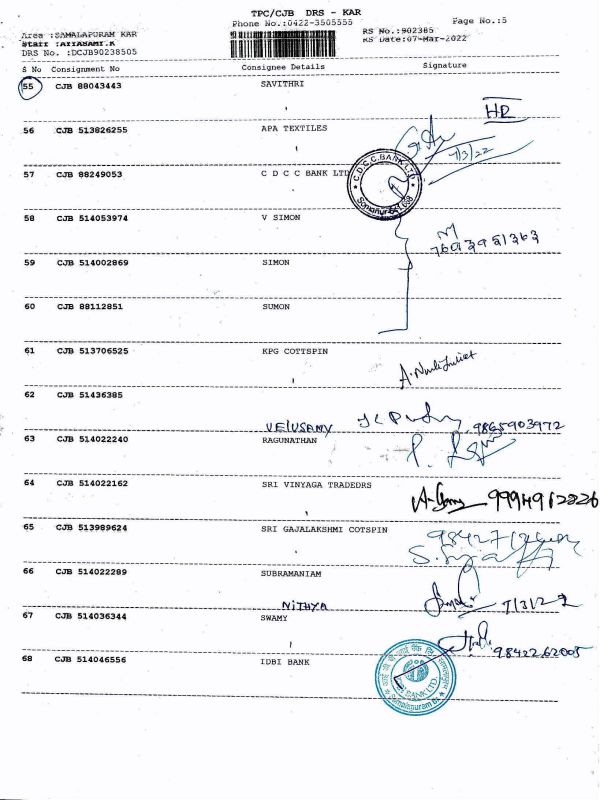 TPC/CJB DRS - KAR
Phone No.:0422-3505555 Page No.:5
Area :SAMALAPURAM KAR RS No.:902385
Staff :AIYASAMY.K RS Date:07-Mar-2022
DRS No. :DCJB90238505
S No Consignment No Consignee Details Signature
55 CJB 88043443 SAVITHRI
HR
56 CJB 513826255 APA TEXTILES
7/3/22
57 CJB 88249053 C D C C BANK LTD
C.D.C.C.BANK LTD
58 CJB 514053974 V SIMON
59 CJB 514002869 SIMON
60 CJB 88112851 SUMON
61 CJB 513706525 KPG COTTSPIN
62 CJB 51436385
VELUSAMY 9865903972
63 CJB 514022240 RAGUNATHAN
64 CJB 514022162 SRI VINYAGA TRADEDRS
65 CJB 513989624 SRI GAJALAKSHMI COTSPIN
66 CJB 514022289 SUBRAMANIAM
NITHYA 7/3/22
67 CJB 514036344 SWAMY
9842262005
68 CJB 514046556 IDBI BANK